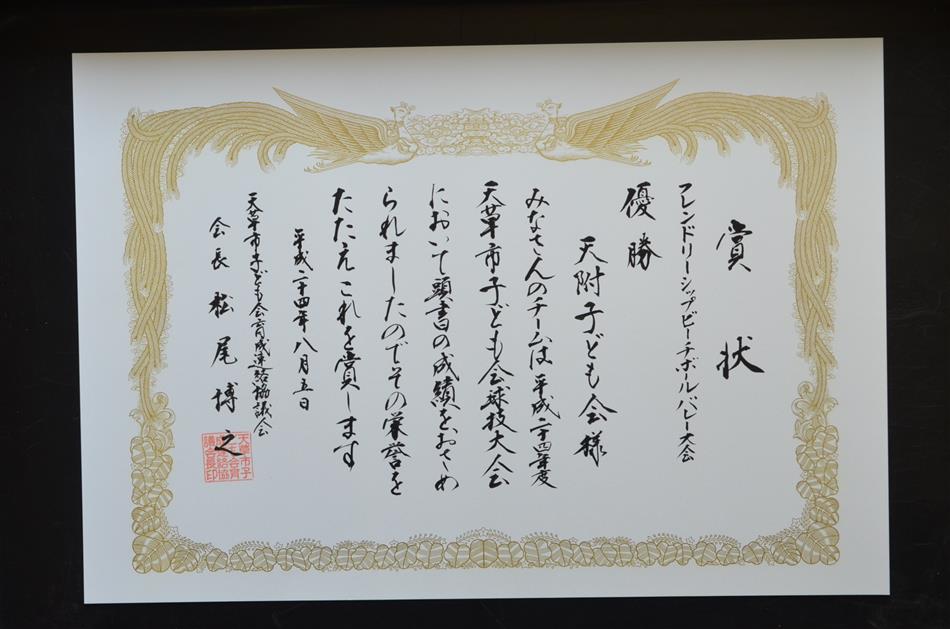 賞状
フレンドリーシップビーチボールバレー大会
優勝
天附子ども会様
みなさんのチームは平成二十四年度
天草市子ども会球技大会
において頭書の成績をおさめ
られましたのでその栄誉を
たたえこれを賞します
平成二十四年八月五日
天草市子ども会育成連絡協議会
会長 松尾博之
天草市子
ども会育
成連絡協
議会長印